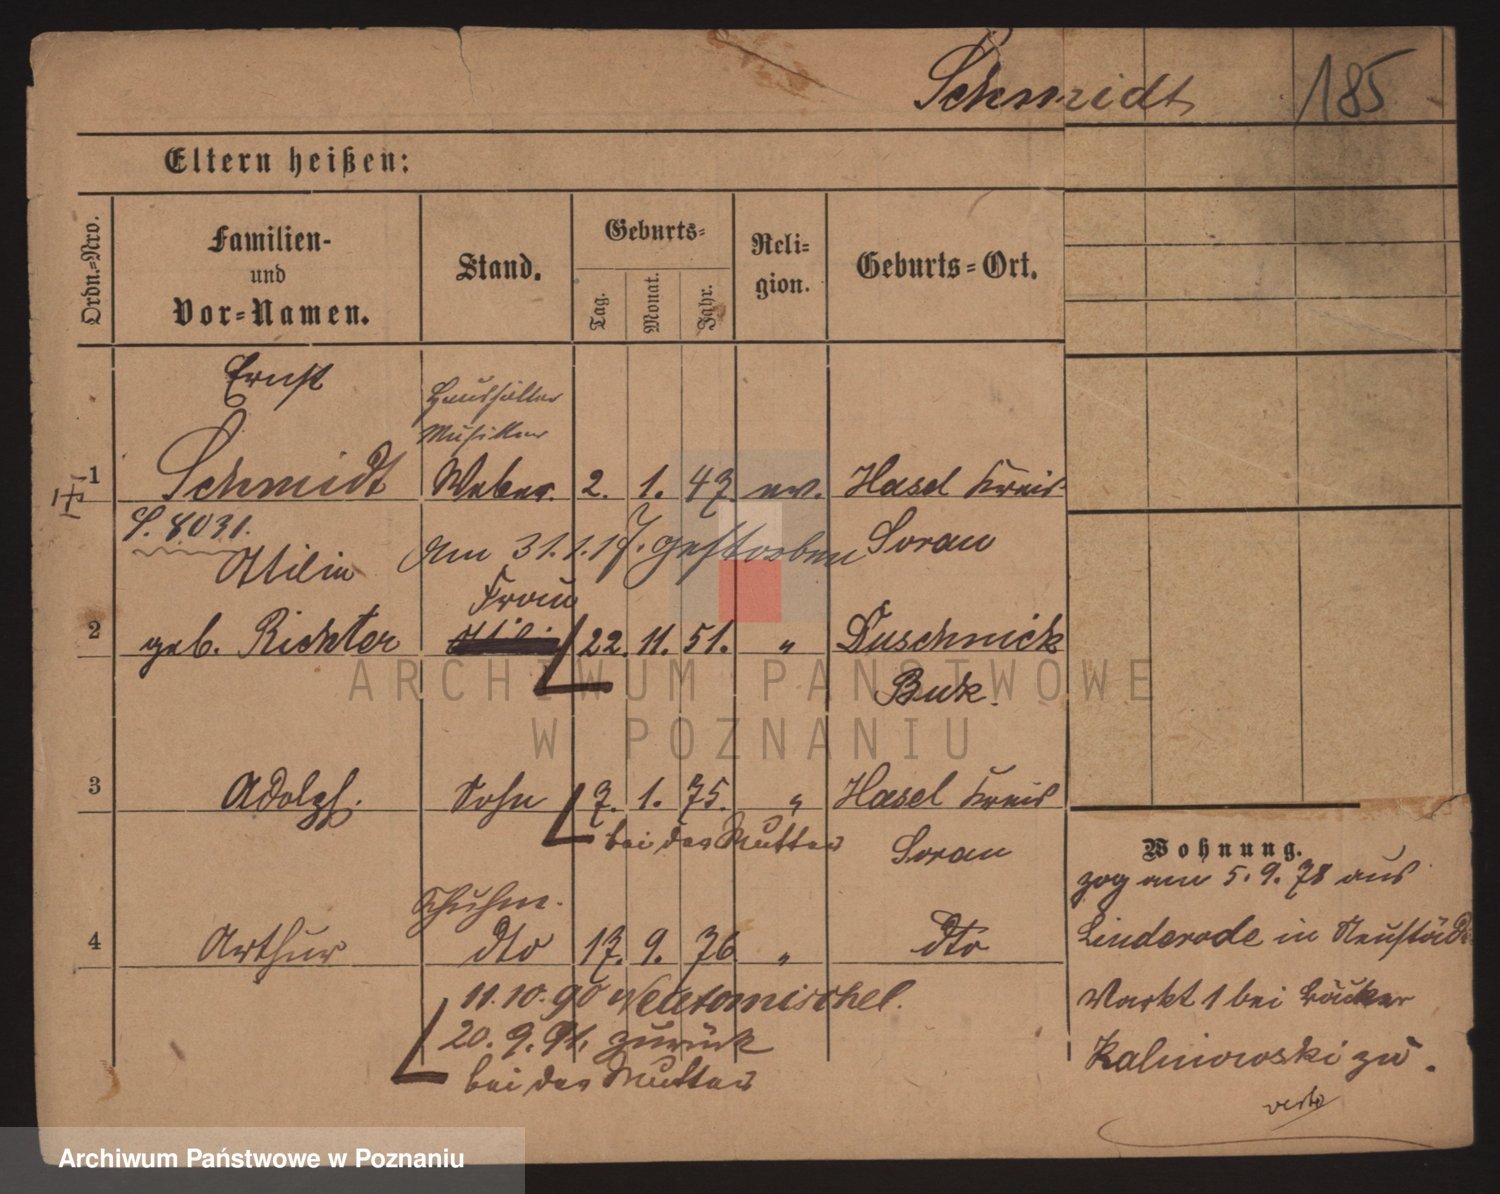 Schmidt 185
Eltern heißen:
Ordn.=Nro.
Familien-
und
Vor=Namen.
Stand.
Geburts=
Tag.
Monat.
Jahr.
Reli=
gion.
Geburts=Ort.
Ernst
Haushälter
Musiker
1 Schmidt Weber. 2. 1. 47 ev. Hasel Kreis
S. 8031. Am 31.1.17. gestorben Sorau
Ottilie Frau
2 geb. Richter 22. 11. 51. " Duschnick
Buk.
3 Adolph. Sohn 7. 1. 75. " Hasel Kreis
bei der Mutter Sorau
Schuhm.
4 Arthur dto 17. 9. 76 " dto
11.10.90 Neutomischel.
20.9.91. zurück
bei der Mutter
Wohnung.
zog am 5.9.78 aus
Linderode in Neustädt
Markt 1 bei Bäcker
Kalinowski zu.
verte
ARCHIWUM PAŃSTWOWE
W POZNANIU
Archiwum Państwowe w Poznaniu